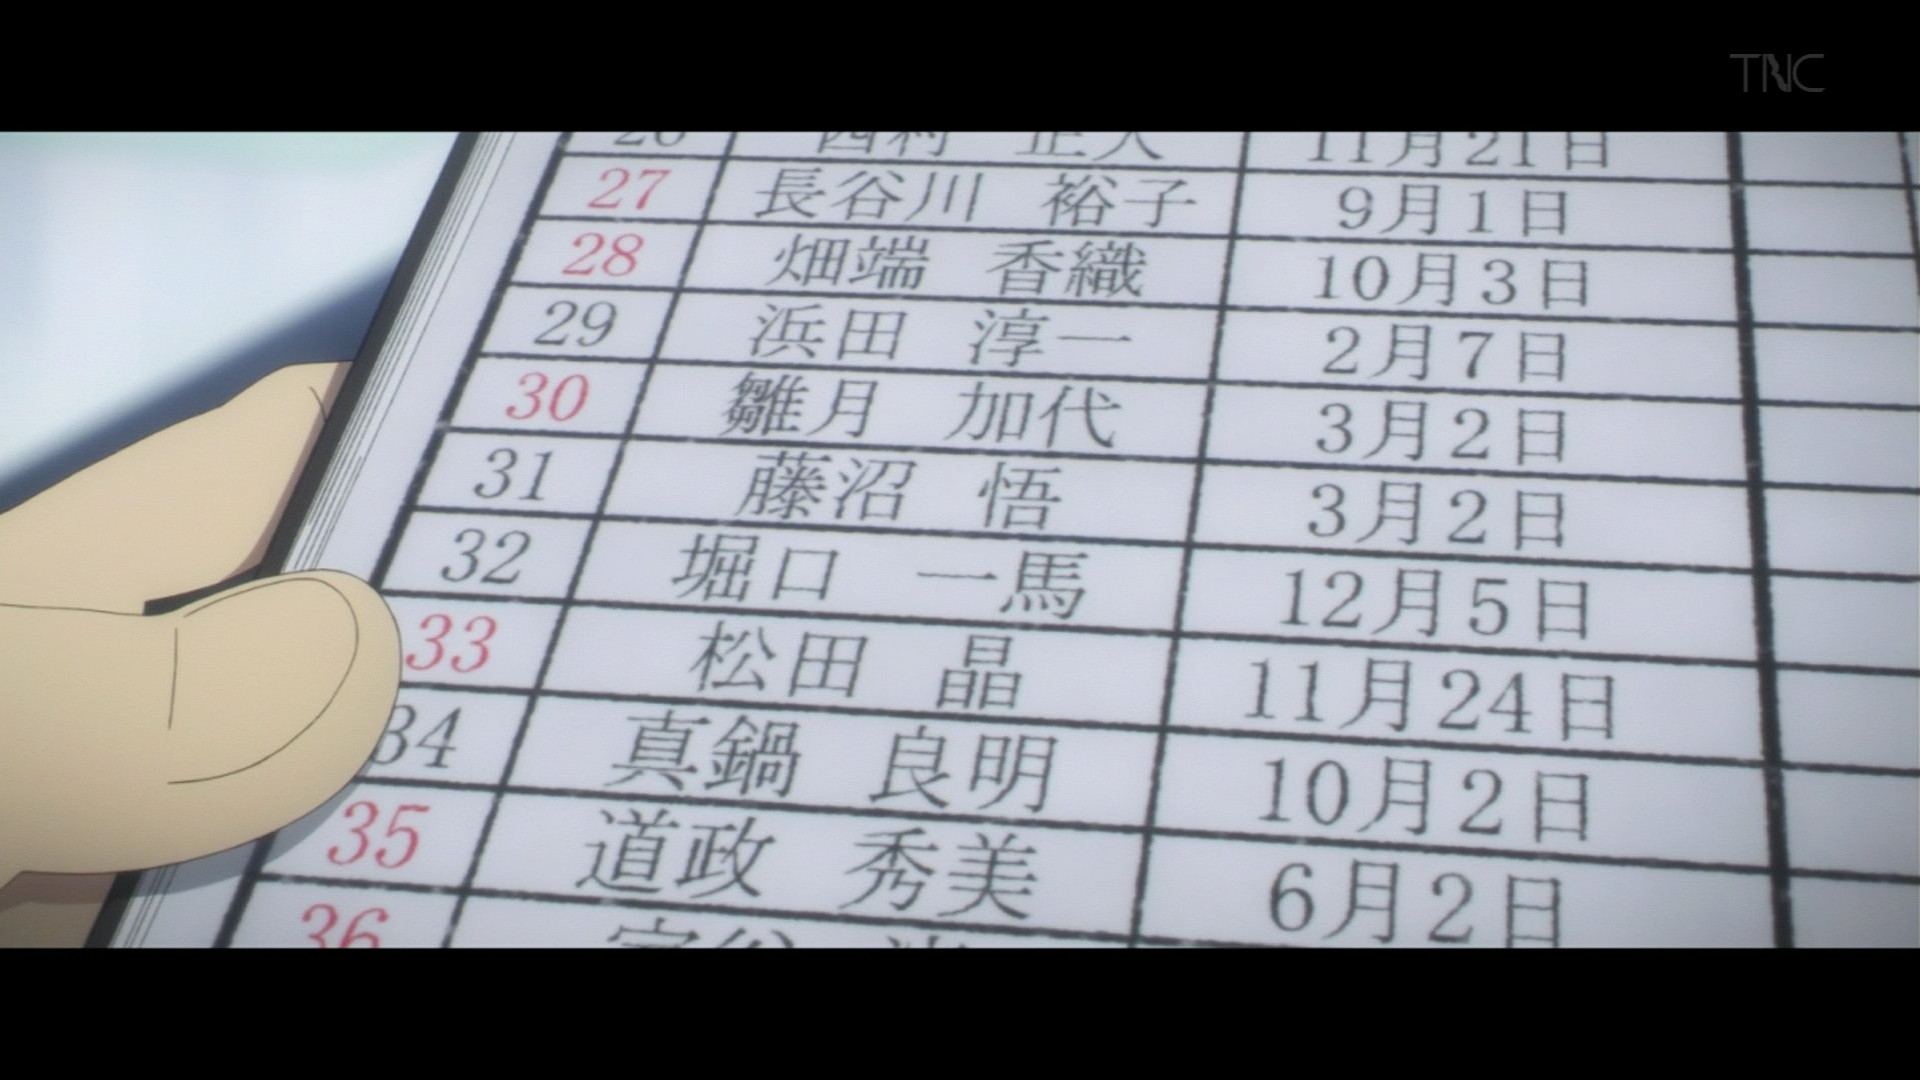 TNC
26 西村 正人 11月21日
27 長谷川 裕子 9月1日
28 畑端 香織 10月3日
29 浜田 淳一 2月7日
30 雛月 加代 3月2日
31 藤沼 悟 3月2日
32 堀口 一馬 12月5日
33 松田 晶 11月24日
34 真鍋 良明 10月2日
35 道政 秀美 6月2日
36